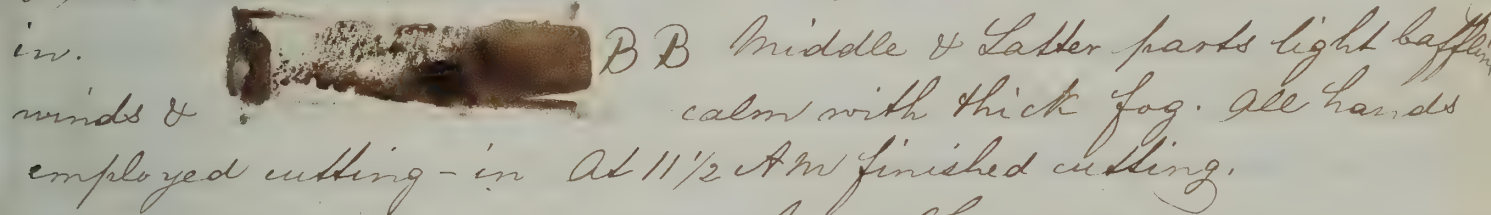 in. B B Middle & Latter parts light baffling
winds & calm with thick fog. All hands
employed cutting-in At 11 1/2 AM finished cutting.